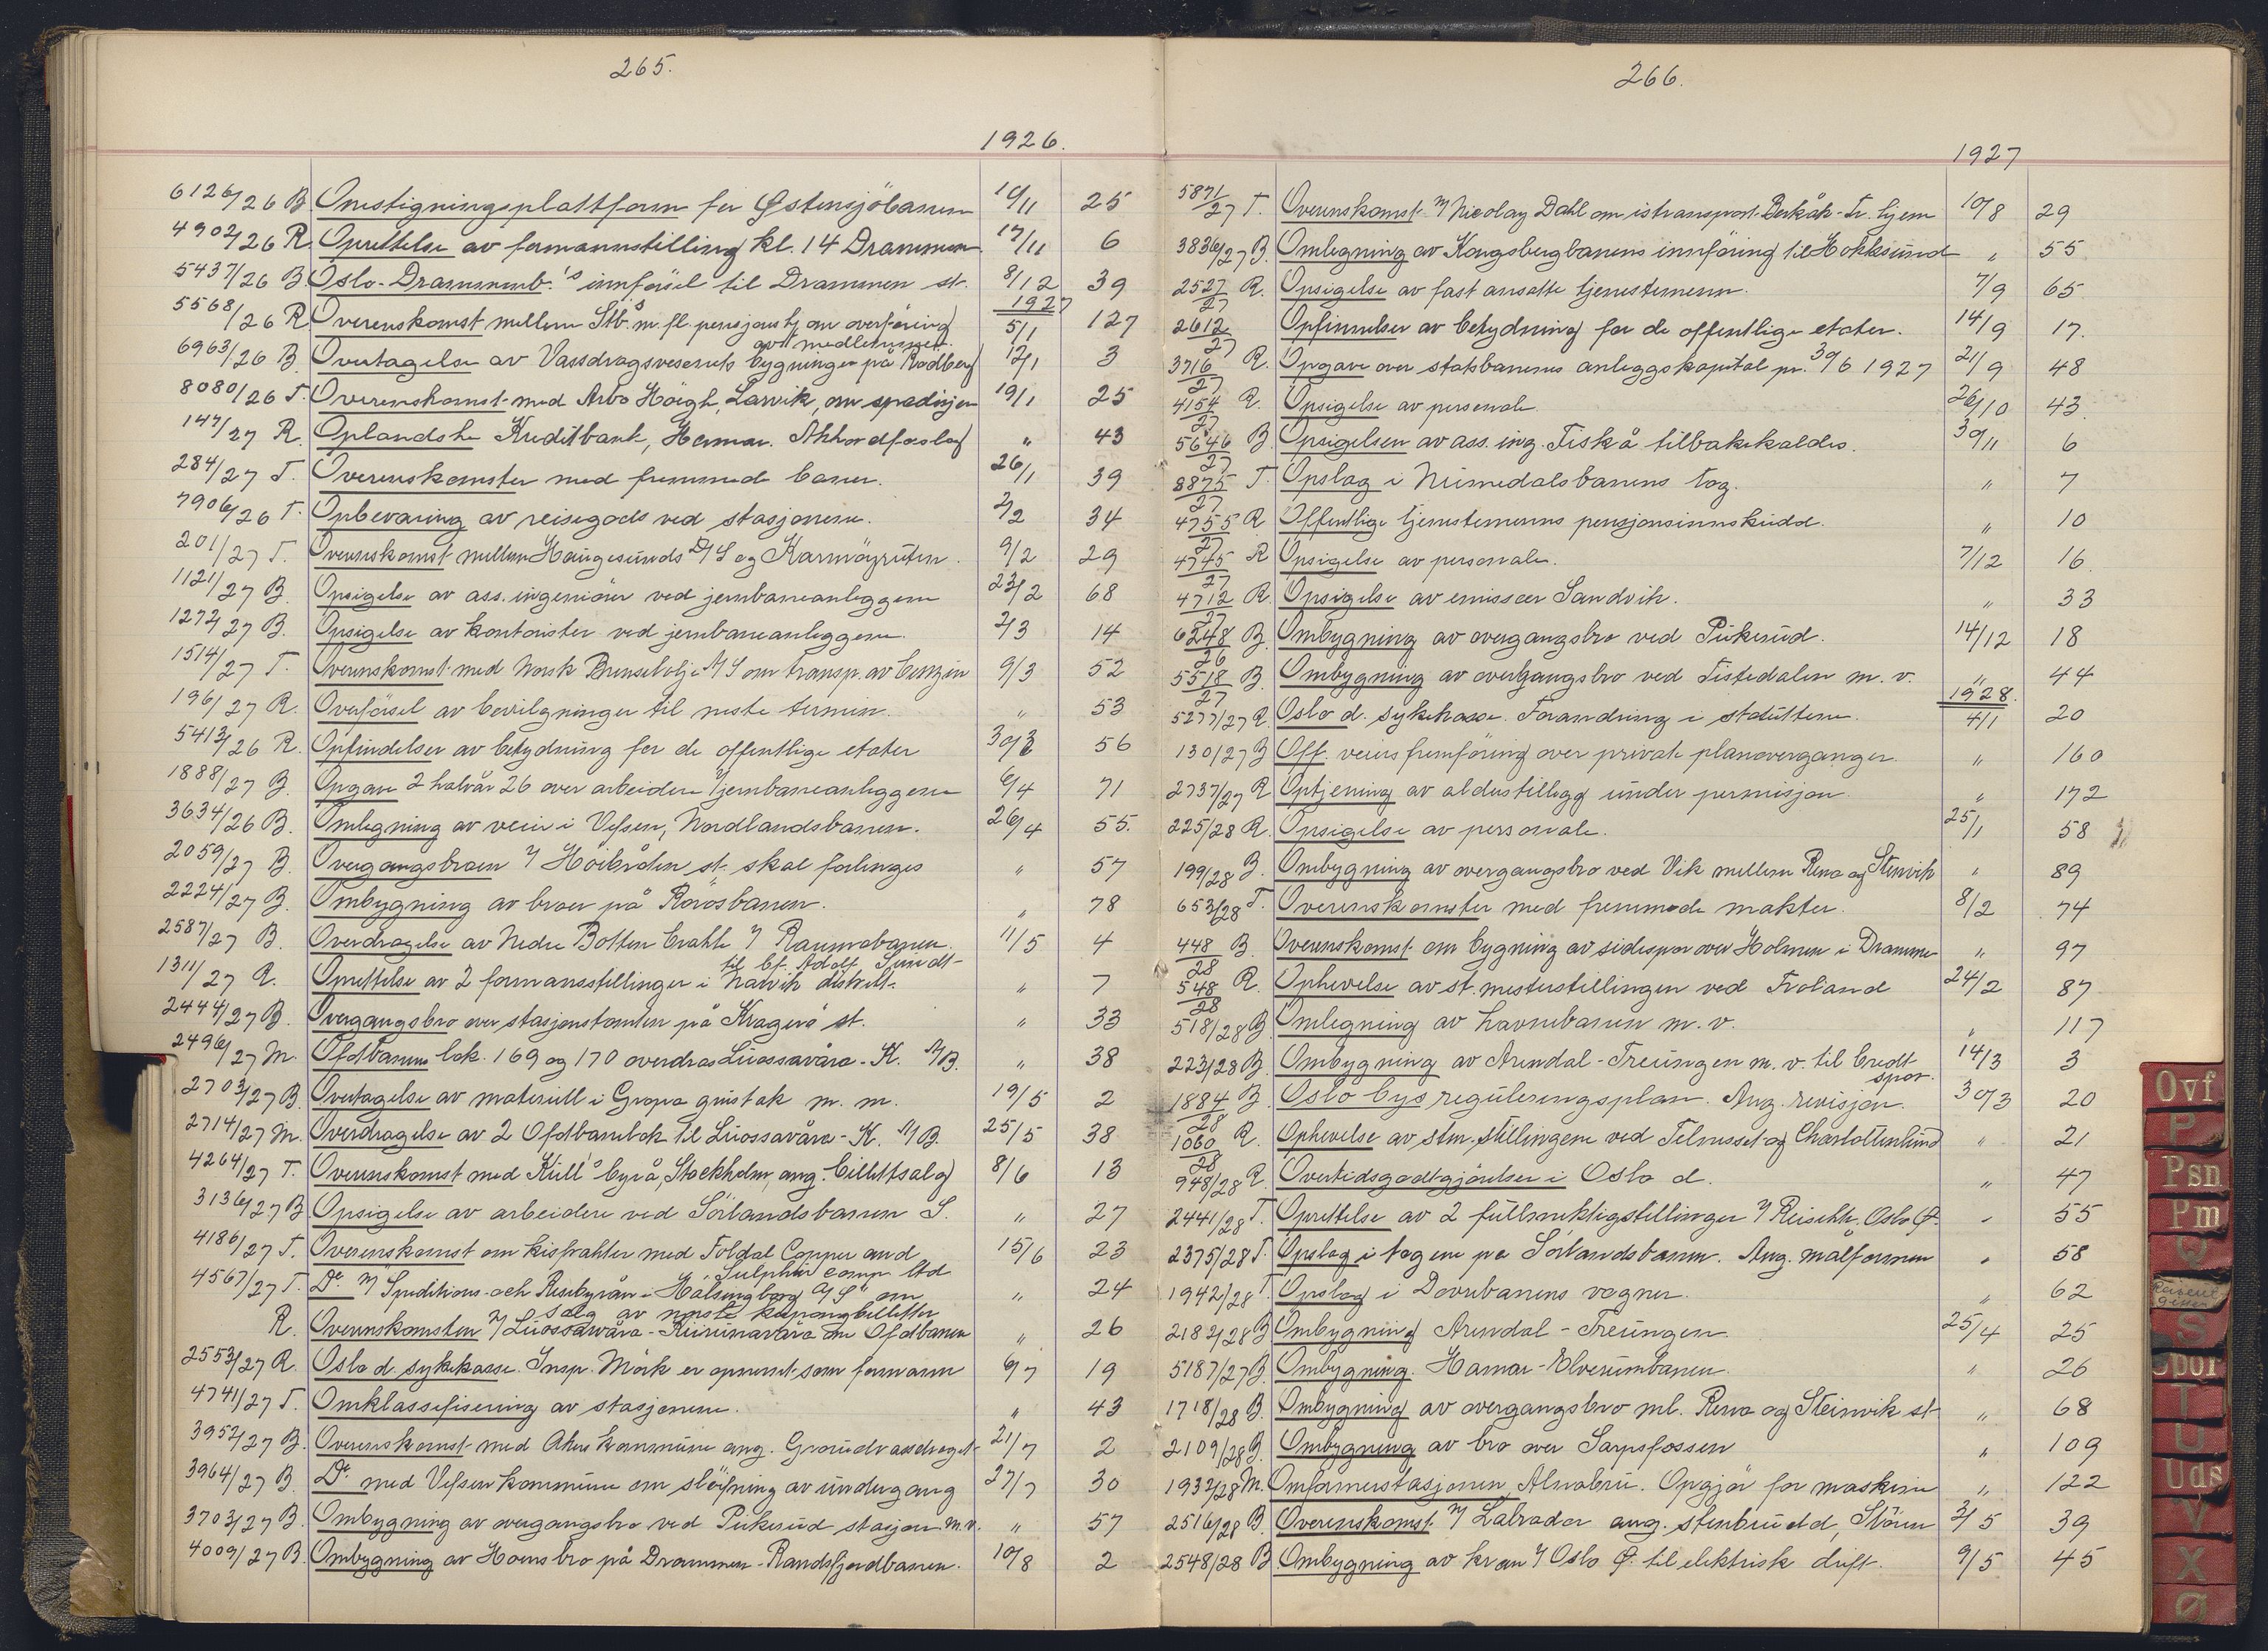 265.
1926.
6126/26 B. Omstigningsplattform for Østensjöbanen 10/11 25
4902/26 R. Oprettelse av formannstilling kl. 14 Drammen 17/11 6
5437/26 B. Oslo-Drammenb.'s innförsel til Drammen st. 8/12 39
1927
5568/26 R. Overenskomst mellem Stb.'s m. fl. pensjonskj. om overföring 5/1 127
av medlemmer.
6963/26 B. Overtagelse av Vassdragsvesenets bygninger på Rödberg 12/1 3
8080/26 T. Overenskomst med Arbo Höegh, Larvik, om spedisjon 19/1 25
147/27 R. Oplandske Kreditbank, Hamar. Akkordforslag " 43
284/27 T. Overenskomster med fremmede baner. 26/1 39
7906/26 T. Opbevaring av reisegods ved stasjonene. 2/2 34
201/27 T. Overenskomst mellem Haugesunds D/S og Karmöyruten. 9/2 29
1121/27 B. Opsigelse av ass. ingeniörer ved jernbaneanleggene 23/2 68
1272/27 B. Opsigelse av kontorister ved jernbaneanleggene. 2/3 14
1514/27 T. Overenskomst med Norsk Brenselolje A/S om transp. av benzin 9/3 52
196/27 R. Overförsel av bevilgninger til neste termin. " 53
5413/26 R. Opfindelser av betydning for de offentlige etater 30/3 56
1888/27 B. Opgave 2 halvår 26 over arbeidere v/jernbaneanleggene 6/4 71
3634/26 B. Omlegning av veier i Vefsen, Nordlandsbanen. 26/4 55.
2059/27 B. Overgangsbroen v/ Höibråten st. skal forlenges " 57
2224/27 B. Ombygning av broer på Rörosbanen. " 78
2587/27 B. Overdragelse av Nedre Botten brakke v/ Raumabanen. 11/5 4
til bf. Adolf Sundt
1311/27 R. Oprettelse av 2 formansstillinger i Narvik distrikt. " 7
2444/27 B. Overgangsbro over stasjonstomten på Kragerö st. " 33
2496/27 M. Ofotbanens lok. 169 og 170 overdras Luossavåra-K. A/B. " 38
2703/27 B. Overtagelse av materiell i Gropa grustak m. m. 19/5 2
2714/27 M. Overdragelse av 2 Ofotbanelok til Luossavåra-K. A/B. 25/5 38
4264/27 T. Overenskomst med Küll's byrå, Stockholm, ang. billettsalg 8/6 13
3136/27 B. Opsigelse av arbeidere ved Sörlandsbanen S. " 27
4186/27 T. Overenskomst om kisfrakter med Foldal Copper and 15/6 23
Sulphur Comp. Ltd
4567/27 T. Do v/ "Speditions- och Resebyrån i Hälsingborg A/S" om " 24
salg av norske kupongbilletter
R. Overenskomsten v/ Luossawåra-Kiirunavåra om Ofotbanen " 26
2553/27 R. Oslo d. sykekasse. Insp. Mörk er opnevnt som formann 6/7 19
4741/27 T. Omklassifisering av stasjonene. " 43
3952/27 B. Overenskomst med Aker kommune ang. Grorudvassdraget 21/7 2
3964/27 B. Do. med Vefsen kommune om slöifning av undergang 27/7 30
3703/27 B. Ombygning av overgangsbro ved Pukerud stasjon m.v. " 57
4009/27 B. Ombygning av Homsbro på Drammen-Randsfjordbanen. 10/8 2
266.
1927
5871/27 T. Overenskomst v/ Nicolay Dahl om istransport Berkåk-Tr. hjem 10/8 29
3836/27 B. Omlegning av Kongsbergbanens innföring til Hokksund " 55
2527/27 R. Opsigelse av fast ansatte tjenestemenn. 7/9 65
2612/27 Opfinnelser av betydning for de offentlige etater. 14/9 17.
3716/27 R. Opgave over statsbanenes anleggskapital pr. 30/6 1927 21/9 48
4154/27 R. Opsigelse av personale 26/10 43.
5646/27 B. Opsigelsen av ass. ing. Fiskå tilbakekaldes. 30/11 6
8875/27 T. Opslag i Numedalsbanens tog. " 7
4755/27 R Offentlige tjenestemenns pensjonsinnskudd. " 10
4745/27 R Opsigelse av personale. 7/12 16
4712/27 R. Opsigelse av emissær Sandvik. " 33
6248/26 B. Ombygning av overgangsbro ved Pukerud. 14/12 18
5518/27 B. Ombygning av overgangsbro ved Tistedalen m. v. " 44
1928.
5277/27 R. Oslo d. sykekasse. Forandring i statuttene. 4/1 20
130/27 B Off. veiers fremföring over private planoverganger. " 160
2737/27 R Optjening av alderstillegg under permisjon " 172
225/28 R. Opsigelse av personale. 25/1 58
199/28 B. Ombygning av overgangsbro ved Vik mellem Rena og Stenvik " 89
653/28 T. Overenskomster med fremmede makter. 8/2 74
448/28 B. Overenskomst om bygning av sidespor over Holmen i Drammen " 97
548/28 R. Ophevelse av st.mesterstillingen ved Froland 24/2 87
518/28 B Omlegning av havnebanen m. v. " 117
223/28 B. Ombygning av Arendal-Treungen m. v. til bredt 14/3 3
spor.
1884/28 B. Oslo bys reguleringsplan. Ang. revisjon. 30/3 20
1060/28 R. Ophevelse av stm.stillingene ved Telneset og Charlottenlund " 21
948/28 R. Overtidsgodtgjörelser i Oslo d. " 47
2441/28 T. Oprettelse av 2 fullmektigstillinger v/ Reisektr. Oslo Ø. " 55
2375/28 T. Opslag i togene på Sörlandsbanen. Ang. målformen " 58
1942/28 T Opslag i Dovrebanens vogner. " 62
2182/28 B Ombygning Arendal-Treungen 25/4 25
5187/27 B. Ombygning. Hamar-Elverumbanen. " 26
1718/28 B. Ombygning av overgangsbro ml. Rena og Steinvik st " 68
2109/28 B. Ombygning av bro over Sarpsfossen " 109
1932/28 M. Omformerstasjonen, Alnabru. Opgjör for maskiner " 122
2516/28 B. Overenskomst v/ Labrador ang. stenbrudd, Stören 2/5 39
2548/28 B Ombygning av kran v/ Oslo Ø. til elektrisk drift. 9/5 45
Ovf
P
Psn
Pm
Q
S
Spor
T
U
Uds
V
X
Ø